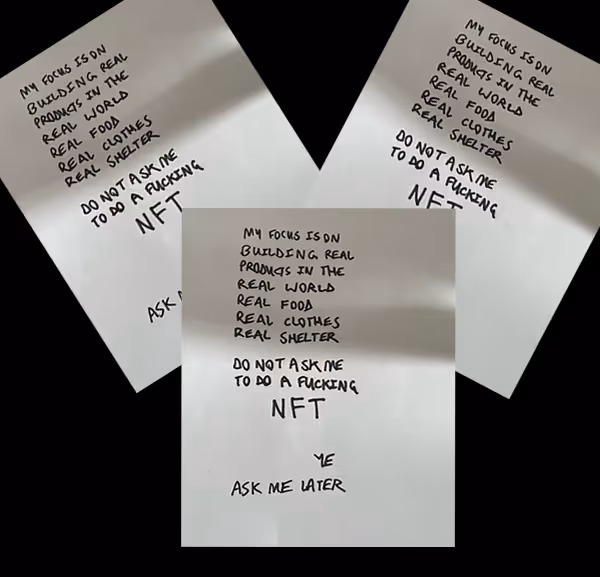 MY FOCUS IS ON
BUILDING REAL
PRODUCTS IN THE
REAL WORLD
REAL FOOD
REAL CLOTHES
REAL SHELTER
DO NOT ASK ME
TO DO A FUCKING
NFT
ASK
MY FOCUS IS ON
BUILDING REAL
PRODUCTS IN THE
REAL WORLD
REAL FOOD
REAL CLOTHES
REAL SHELTER
DO NOT ASK ME
TO DO A FUCKING
NFT
MY FOCUS IS ON
BUILDING REAL
PRODUCTS IN THE
REAL WORLD
REAL FOOD
REAL CLOTHES
REAL SHELTER
DO NOT ASK ME
TO DO A FUCKING
NFT
YE
ASK ME LATER